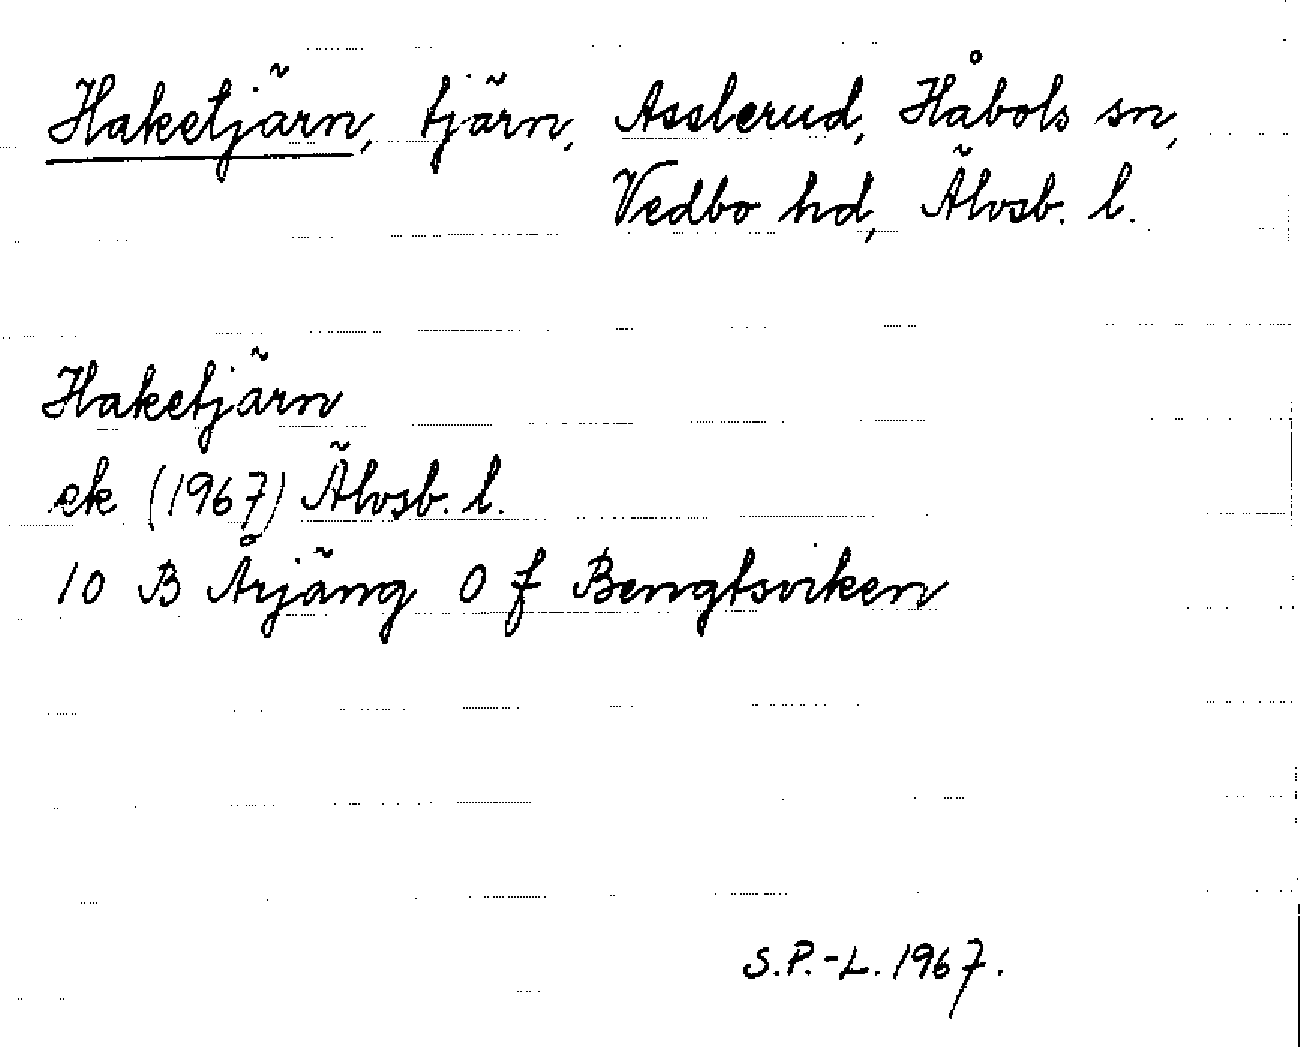 Haketjärn, tjärn, Asslerud, Håbols sn,
Vedbo hd, Älvsb. l.
Haketjärn
ek (1967) Älvsb. l.
10 B Årjäng 0 f Bengtsviken
S.P.-L. 1967.